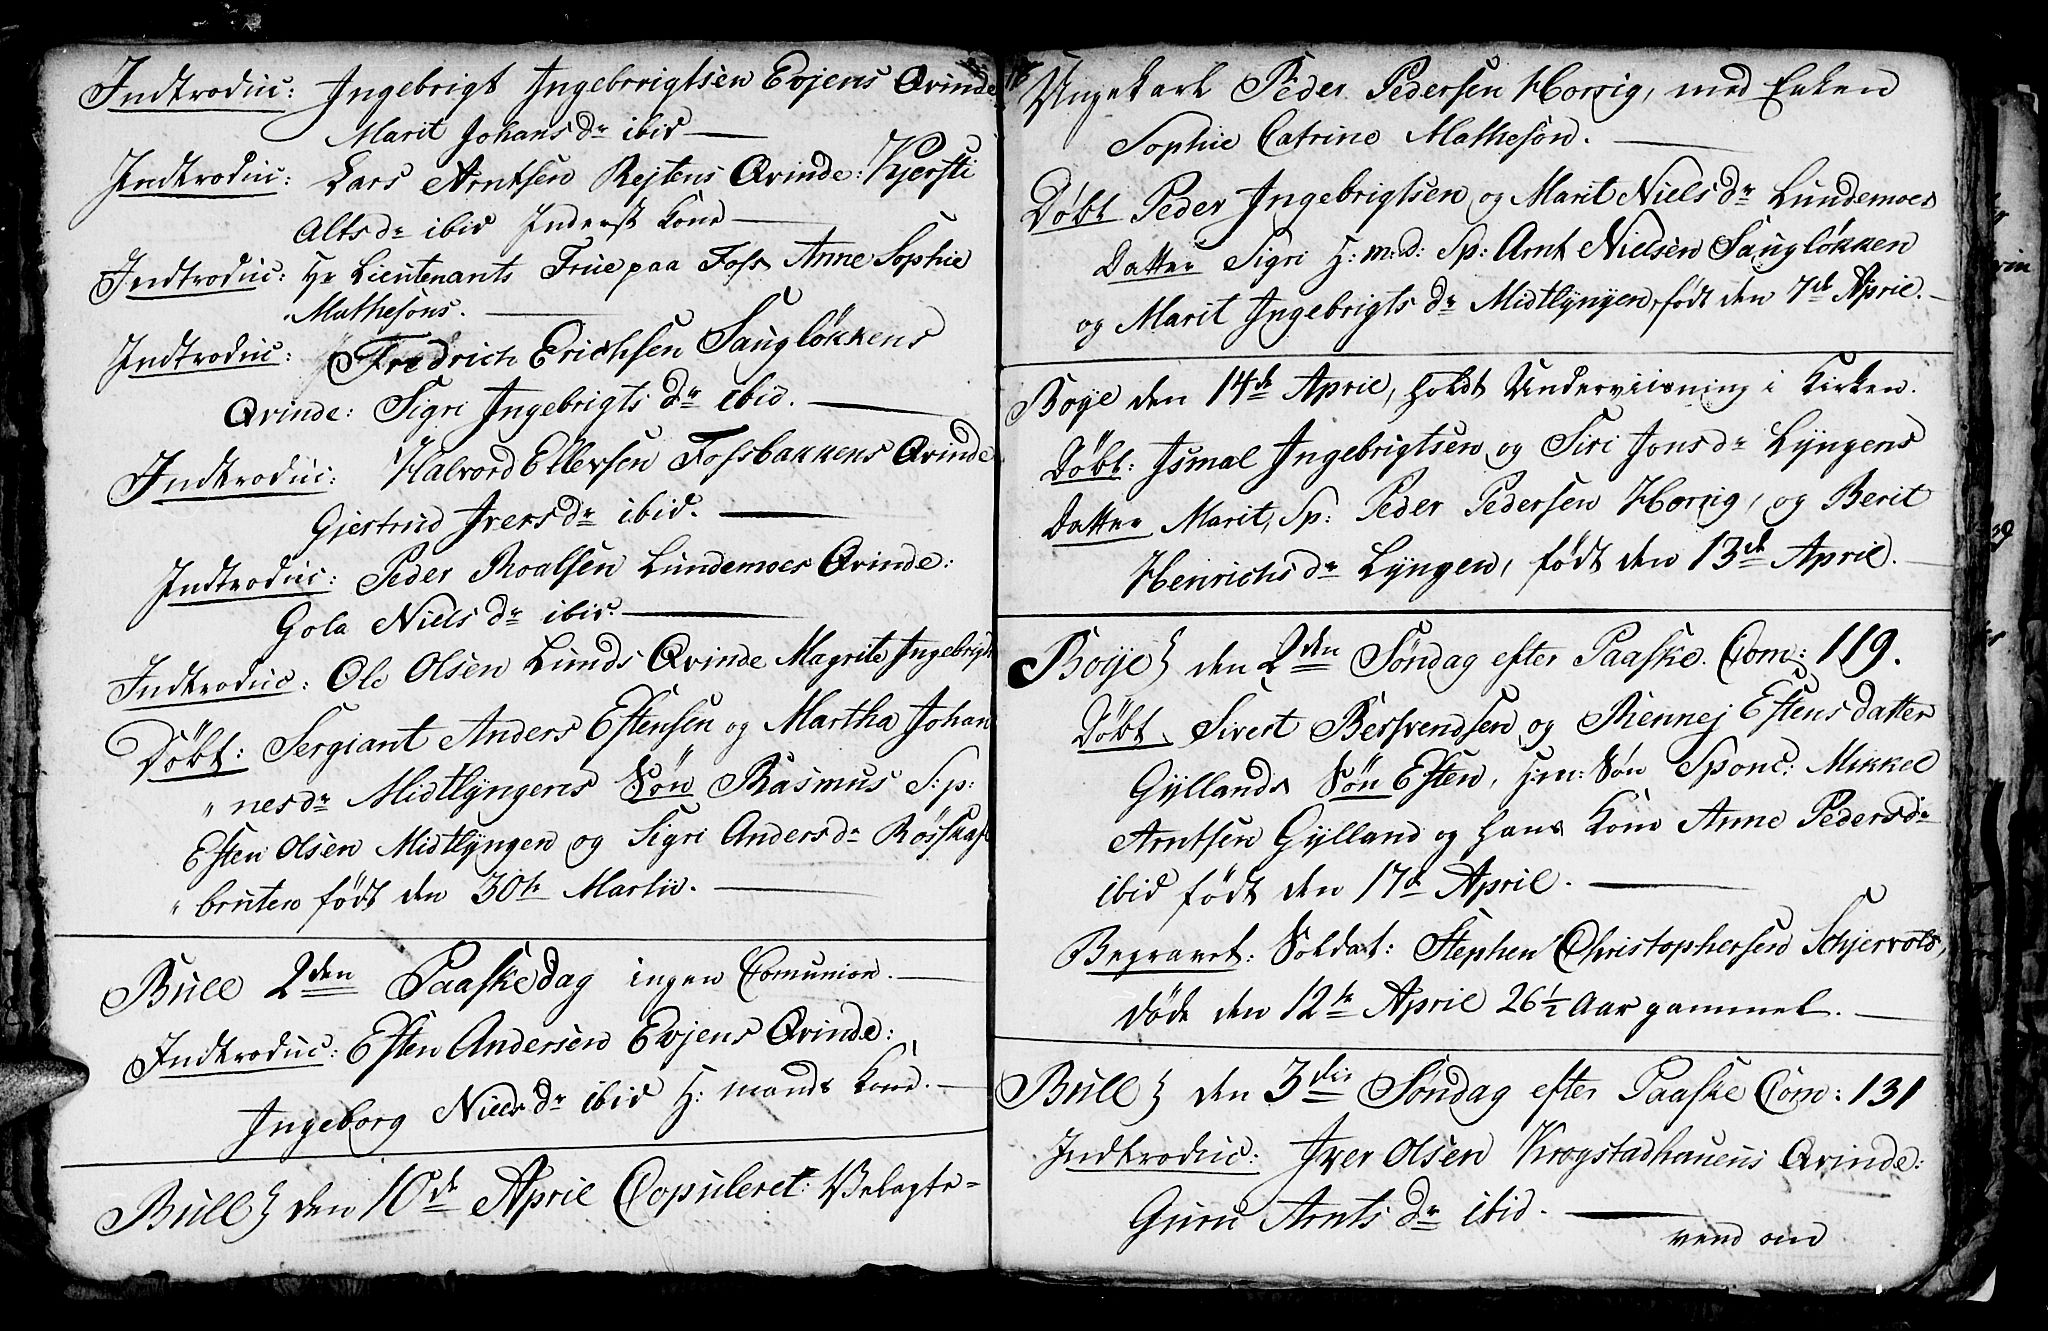 Indtroduc: Ingebrigt Ingebrrigtsen Evjens Qvinde
Marit Johans dr ibid
Indtroduc: Lars Arntsen Rejtens Qvinde: Kjersti
Altsdr ibid Inderst Kone
Indtroduc: Hr Lieutenants Frue paa Foss Anne Sophie
Mathesons.
Indtroduc: Fredrich Erichsen Saugløkkens
Qvinde: Sigri Ingebrigts dr ibid.
Indtroduc: Halvord Ellevsen Fossbakkens Qvinde
Gjertrud Iversdr ibid.
Indtroduc: Peder Roalsen Lundemoes Qvinde:
Gola Niels dr ibid.
Indtroduc: Ole Olsen Lunds Qvinde Magrite Ingebrigts
Døbt: Sergiant Anders Estensen og Martha Johan
" nesdr Midtlyngens Søn Rasmus S:p:
Esten Olsen Midtlyngen og Sigri Anders dr Røsskaft
" bruten født den 30te Martii.
Bull 2den Paaskedag ingen Comunion.
Indtroduc: Esten Andersen Evjens Qvinde:
Ingeborg Nielsdr ibid H: mands Kone.
Bull } den 10de April Copuleret: Velagte-
Ungekarl Peder Pedersen Horrig, med Enken
Sophie Catrine Matheson.
Døbt Peder Ingebrigtsen og Marit Nielsdr Lundemoes
Datter Sigri H:m:D: Sp: Arnt Nielsen Saugløkken
og Marit Ingebrigts dr Midtlyngen, født den 7de April.
Boye den 14de April, holdt Underviisning i Kirken.
Døbt: Ismal Ingebrigtsen og Siri Jonsdr Lyngens
Datter Marit, Sp: Peder Pedersen Horrig, og Berit
Henrichsdr Lyngen, født den 13de April.
Boye } den 2den Søndag efter Paaske. Com: 119.
Døbt Sivert Bersvendsen og Rennej Estensdatter
Gyllands Søn Esten, H:m: Søn Sponc: Mikkel
Arntsen Gylland og hans Kone Anne Pedersdr
ibid født den 17de April.
Begravet: Soldat: Stephen Christophersen Schjervold,
døde den 12te April 26½ Aar gammel.
Bull } den 3die Søndag efter Paaske Com: 131
Indtroduc: Iver Olsen Krogstadhauens Qvinde:
Guru Arnts dr ibid.
vend om